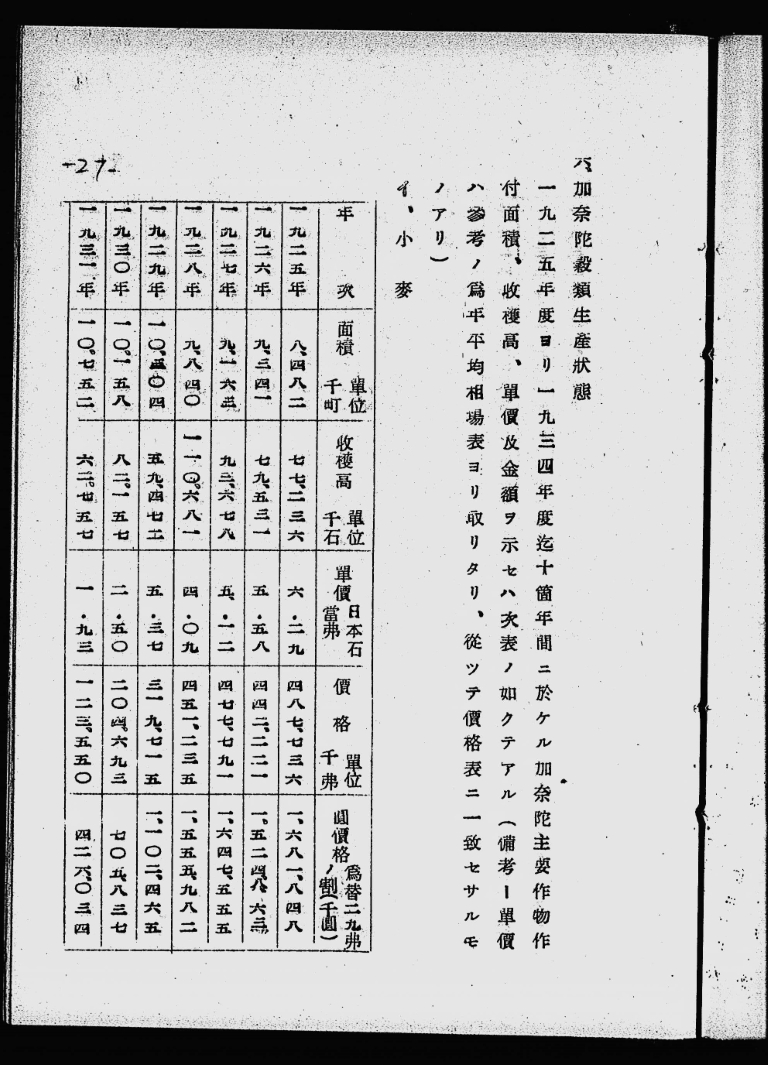 加奈陀穀類生産狀態
一九二五年度ヨリ一九三四年度迄十箇年間ニ於ケル加奈陀主要作物作
付面積、收穫高、單價及金額ヲ示セハ次表ノ如クテアル(備考ー單價
ハ參考ノ爲年平均相場表ヨリ取リタリ、從ツテ價格表ニ一致セサルモ
ノアリ)
イ、小麥
年次 面積 單位千町 收穫高 單位千石 單價 日本石當弗 價格 單位千弗 圓價格 爲替二九弗ノ割(千圓)
一九二五年 八、四八二 七七、二三六 六・二九 四八七、七三六 一、六八一、八四八
一九二六年 九、三四一 七九、五三一 五・五八 四四二、二二一 一、五二四、八六三
一九二七年 九、一六三 九三、六七八 五・一二 四七七、七九一 一、六四七、五五五
一九二八年 九、八四〇 一一〇、六八一 四・〇九 四五一、二三五 一、五五五、九八二
一九二九年 五九、四七二 五・三七 三一九、七一五 一、一〇二、四六五
一九三〇年 一〇、一五八 八二、一五七 二・五〇 二〇四、六九三 七〇五、八三七
一九三一年 一〇、七五二 六二、七五七 一・九三 一二三、五五〇 四二六、〇三四
-27-